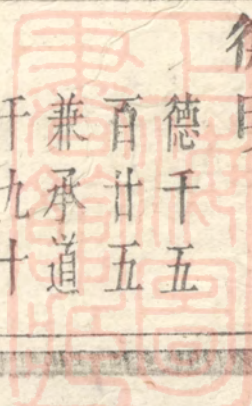 德千五
百廿五
兼承道
千九十